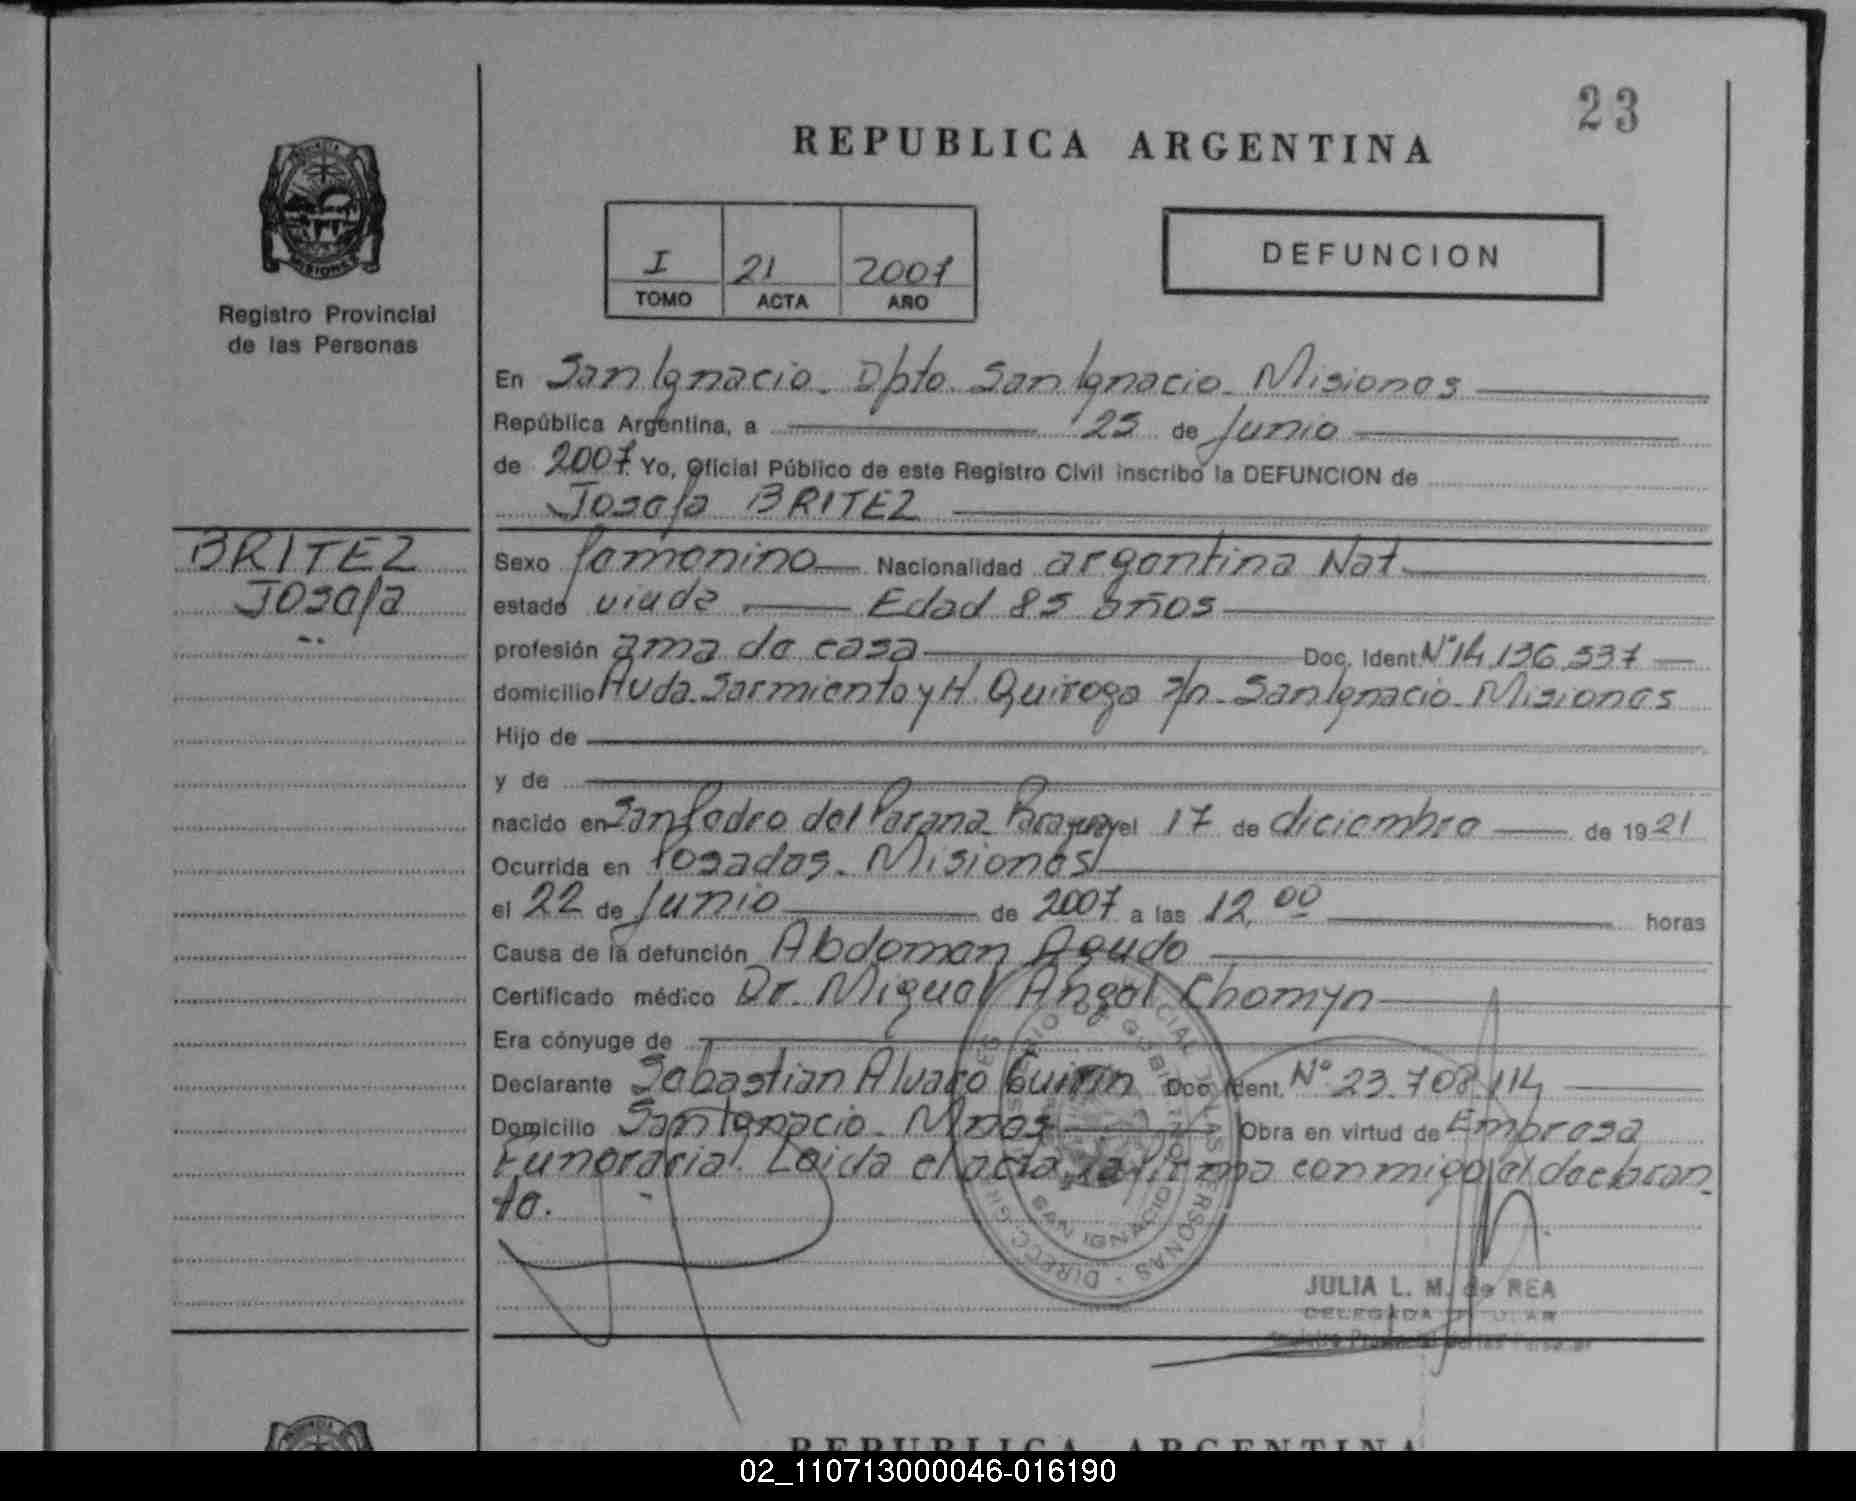 23
REPUBLICA ARGENTINA
I 21 2007
TOMO ACTA AÑO
DEFUNCION
Registro Provincial
de las Personas
En San Ignacio - Dpto. San Ignacio - Misiones
República Argentina, a 25 de Junio
de 2007. Yo, Oficial Público de este Registro Civil inscribo la DEFUNCION de
Josefa BRITEZ
BRITEZ
Josefa
Sexo femenino Nacionalidad argentina Nat.
estado viuda Edad 85 años
profesión ama de casa Doc. Ident. Nº 14.136.537
domicilio Avda. Sarmiento y H. Quiroga s/n - San Ignacio - Misiones
Hijo de
y de
nacido en San Pedro del Parana - Paraguay el 17 de diciembre de 1921
Ocurrida en Posadas - Misiones
el 22 de Junio de 2007 a las 12,00 horas
Causa de la defunción Abdomen Agudo
Certificado médico Dr. Miguel Angel Chomyn
Era cónyuge de
Declarante Sebastian Alvaro Guirin Doc. Ident. Nº 23.708.114
Domicilio San Ignacio - Mnes Obra en virtud de Empresa
Funeraria. Leida el acta la firma conmigo el declaran-
te.
SAN IGNACIO
JULIA L. M. de REA
DELEGADA TITULAR
Registro Provincial de las Personas
REPUBLICA ARGENTINA
02_110713000046-016190